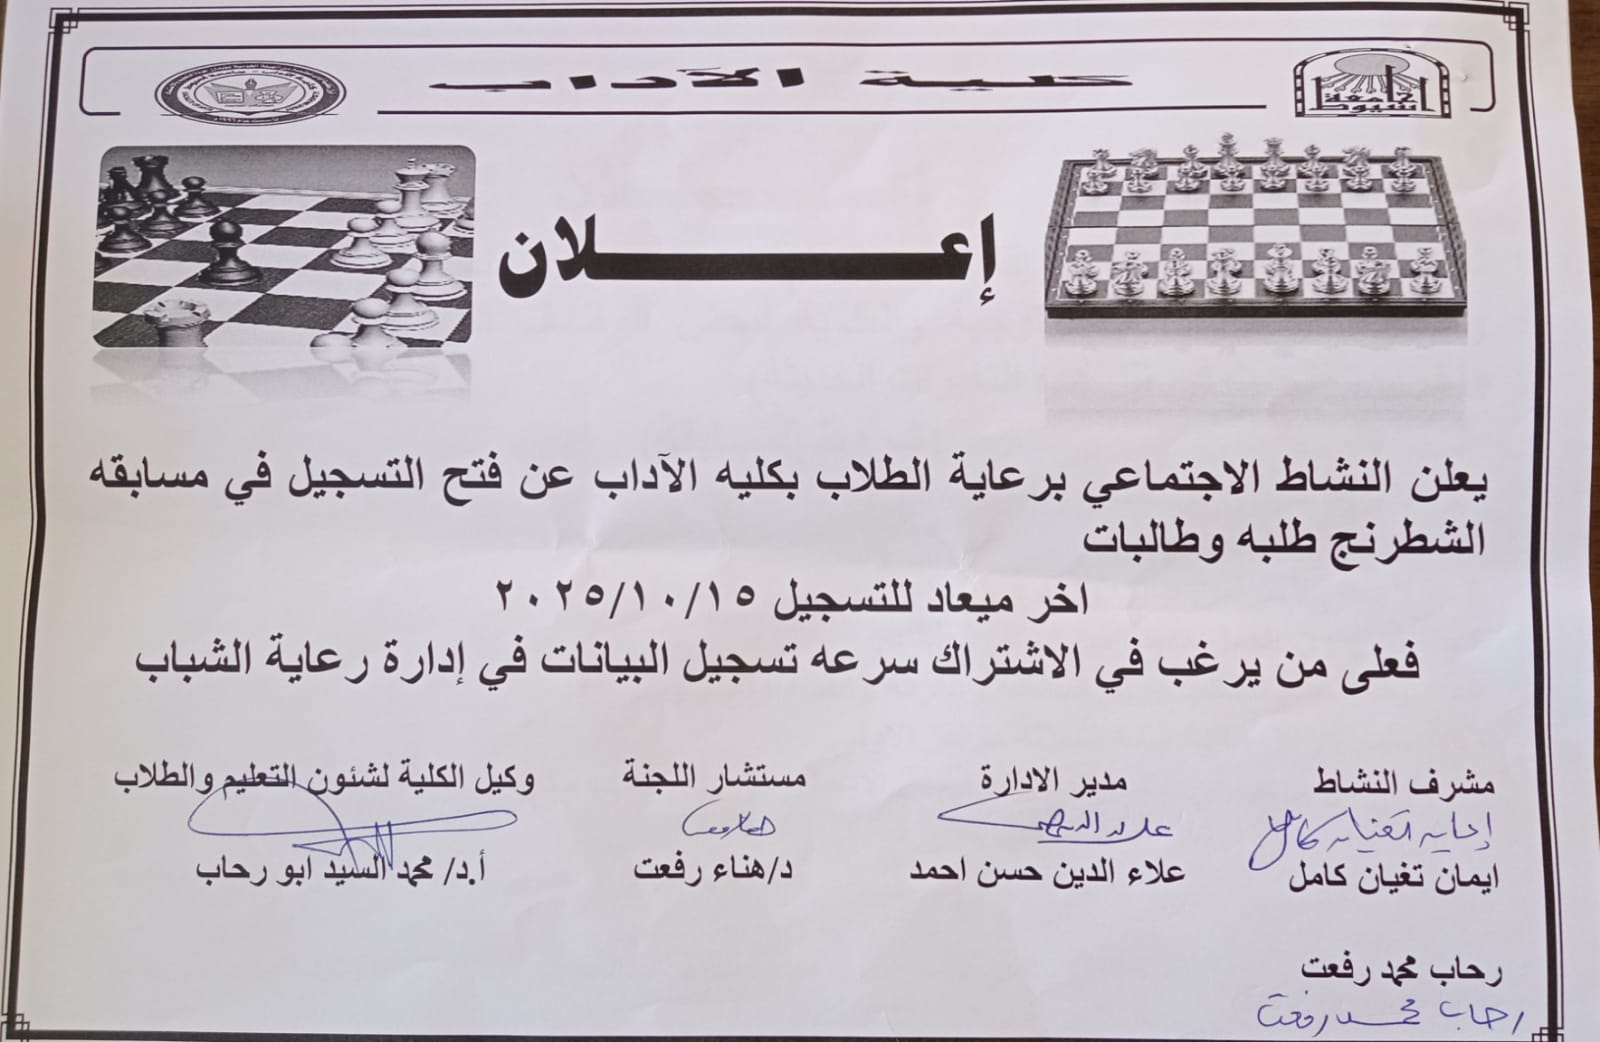 كلية الآداب
جامعة أسيوط
إعلان
يعلن النشاط الاجتماعي برعاية الطلاب بكليه الآداب عن فتح التسجيل في مسابقه
الشطرنج طلبه وطالبات
اخر ميعاد للتسجيل ٢٠٢٥/١٠/١٥
فعلى من يرغب في الاشتراك سرعه تسجيل البيانات في إدارة رعاية الشباب
مشرف النشاط مدير الادارة مستشار اللجنة وكيل الكلية لشئون التعليم والطلاب
ايمان تغيان كامل علاء الدين حسن احمد د/هناء رفعت أ.د/ محمد السيد ابو رحاب
رحاب محمد رفعت
رحاب محمد رفعت